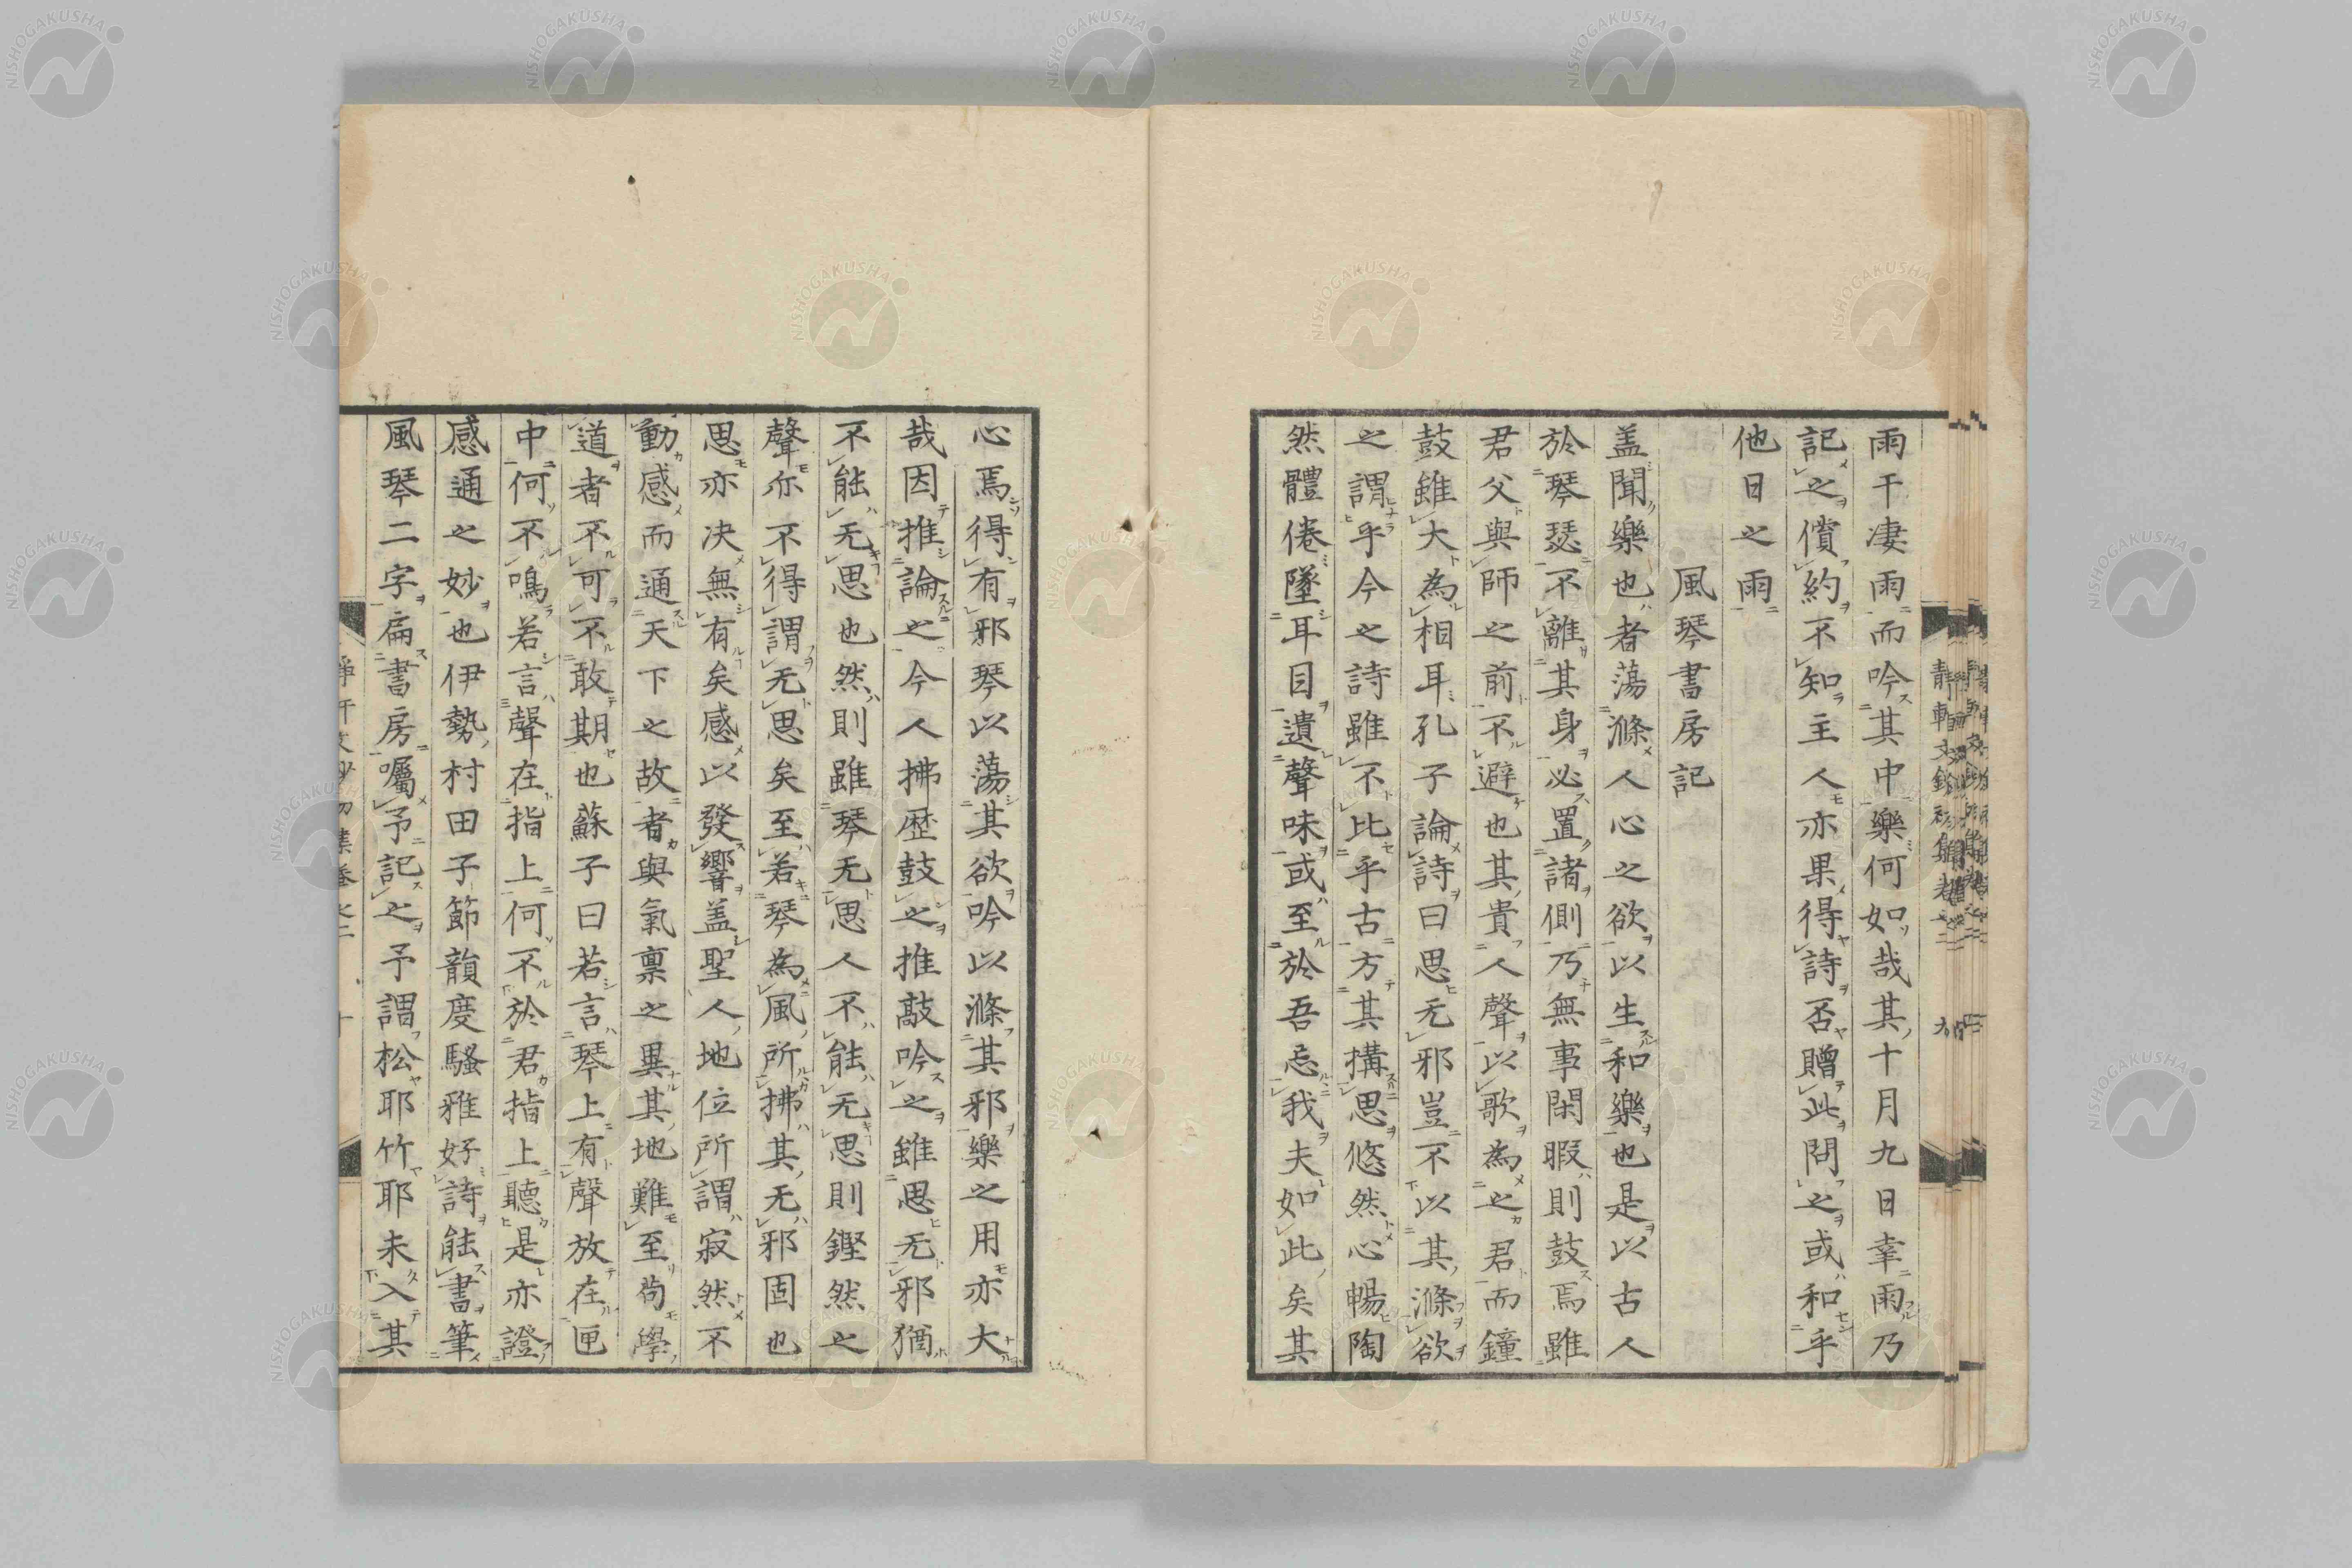 雨干凄雨而吟其中樂何如哉其十月九日幸雨乃
記之償約不知主人亦果得詩否贈此問之或和乎
他日之雨
風琴書房記
盖聞樂也者蕩滌人心之欲以生和樂也是以古人
於琴瑟不離其身必置諸側乃無事閑暇則鼓焉雖
君父與師之前不避也其貴人聲以歌為之君而鐘
鼓雖大為相耳孔子論詩曰思无邪豈不以其滌欲
之謂乎今之詩雖不比乎古方其搆思悠然心暢陶
然體倦墜耳目遺聲味或至於吾忘我夫如此矣其
心焉得有邪琴以蕩其欲吟以滌其邪樂之用亦大
哉因推論之今人拂歴鼓之推敲吟之雖思无邪猶
不能无思也然則雖琴无思人不能无思則鏗然之
聲亦不得謂无思矣至若琴為風所拂其无邪固也
思亦决無有矣感以發響盖聖人地位所謂寂然不
動感而通天下之故者與氣禀之異其地難至苟學
道者不可不敢期也蘇子曰若言琴上有聲放在匣
中何不鳴若言聲在指上何不於君指上聽是亦證
感通之妙也伊勢村田子節韻度騷雅好詩能書筆
風琴二字扁書房囑予記之予謂松耶竹耶未入其
NISHOGAKUSHA